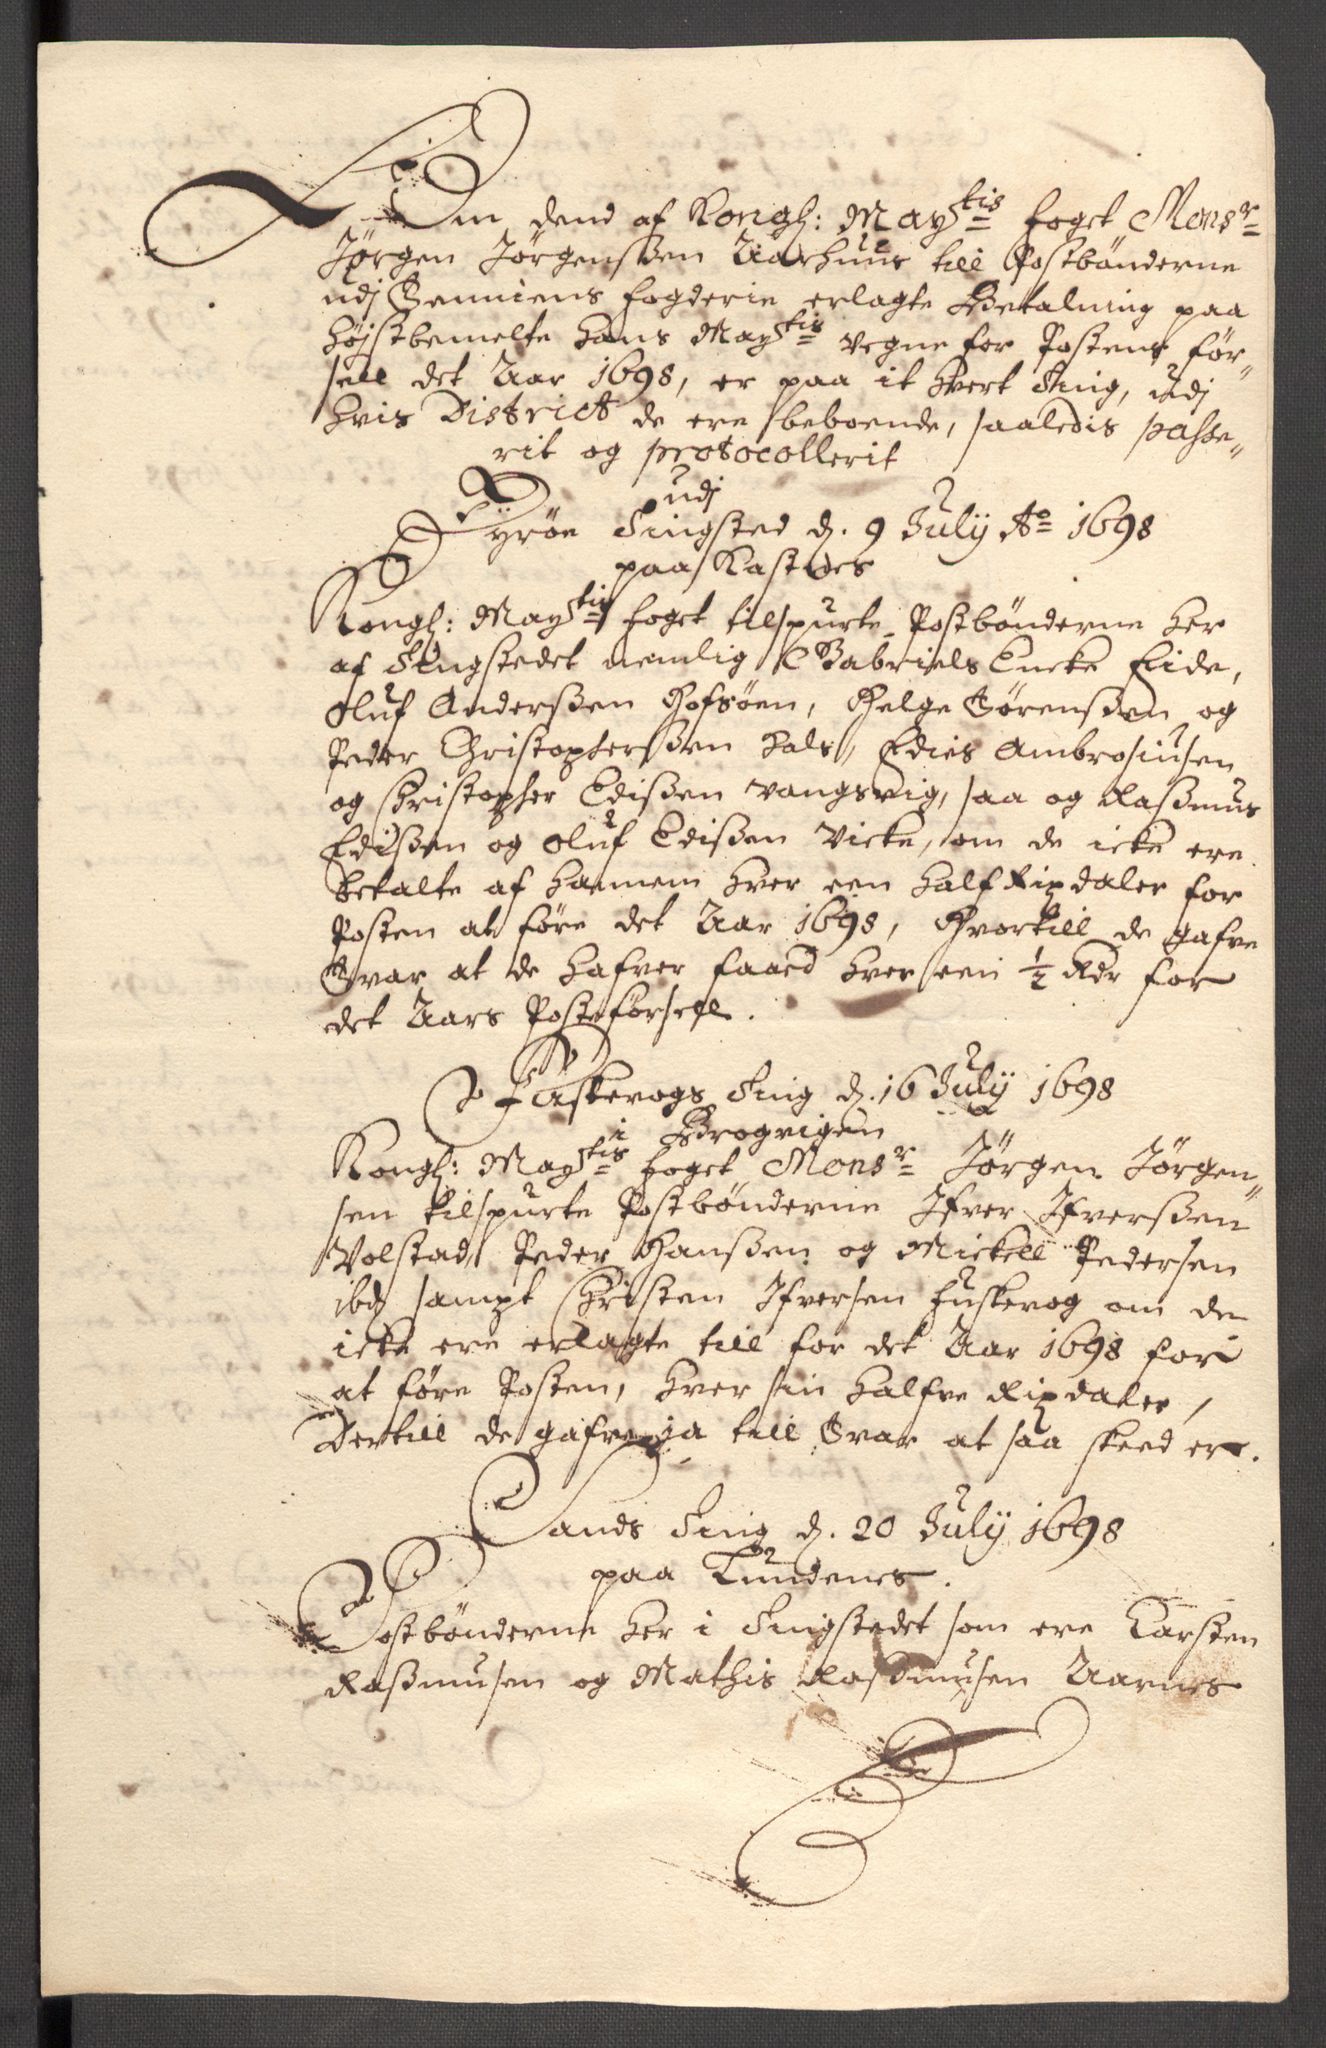 Om dend af Kongl: Maytis foget Monsr
Jørgen Jørgensßen Aarhuus till Postbønderne
udj Senniens fogderie erlagte Betalning paa
højstbemelte hans Maytis Vegne for Postens før„
sell det Aar 1698, er paa it hvert Ting, udj
hvis District de ere beboende, saaledis passe„
rit og protocollerit
udj
Dyrøe Tingsted d. 9 July Ao 1698
paa Kastnes
Kongl: Maytis foget tilspurte Postbønderne her
af Tingstedet nemlig Gabriels Encke Eide,
Oluf Andersßen Hofsøen, Helge Sørensßen og
Peder Christophersßen hals, Edies Ambrosiusen
og Christopher Edisßen Vangsvig, saa og Rasßmus
Edisßen og Oluf Edisßen Vicke, om de icke ere
betalte af hannem hver een half Rixdaler for
Posten at føre det Aar 1698, Hvortill de gafve
Svar at de hafver faaed hver een ½ Rdr for
det Aars Postførsell.
Fuskevogs Ting d. 16 July 1698
i Brogvigen
Kongl: Maytis foget Monsr Jørgen Jørgen„
sen tilspurte Postbønderne Ifver Ifversßen
Volstad, Peder Hansßen og Mickell Pedersen
ibd sampt Christen Ifversen fuskevog om de
icke ere erlagte till for det Aar 1698 for
at føre Posten, hver sin halfve Rixdaler,
Dertill de gafve ja till Svar at saa skeed er.
Sands Ting d. 20 July 1698
paa Tundenes.
Postbønderne her i Tingstedet som ere Carsten
Rasßmusen og Mathis Rasßmusen Aarnes